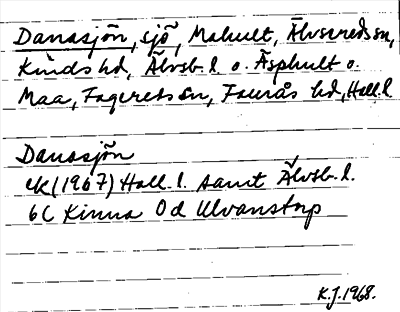 Danasjön, sjö, Mahult, Älvsereds sn,
Kinds hd, Älvsb. l o. Äsphult o.
Maa, Fagereds sn, Faurås hd, Hall. l
Danasjön
ek (1967) Hall. l. samt Älvsb. l.
6C Kinna 0d Ulvanstorp
K.J. 1968.